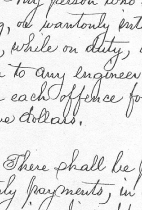 any person who
or wantonly int
, while on duty,
to any engineer
each offence fo
dollars.
There shall be
payments, in